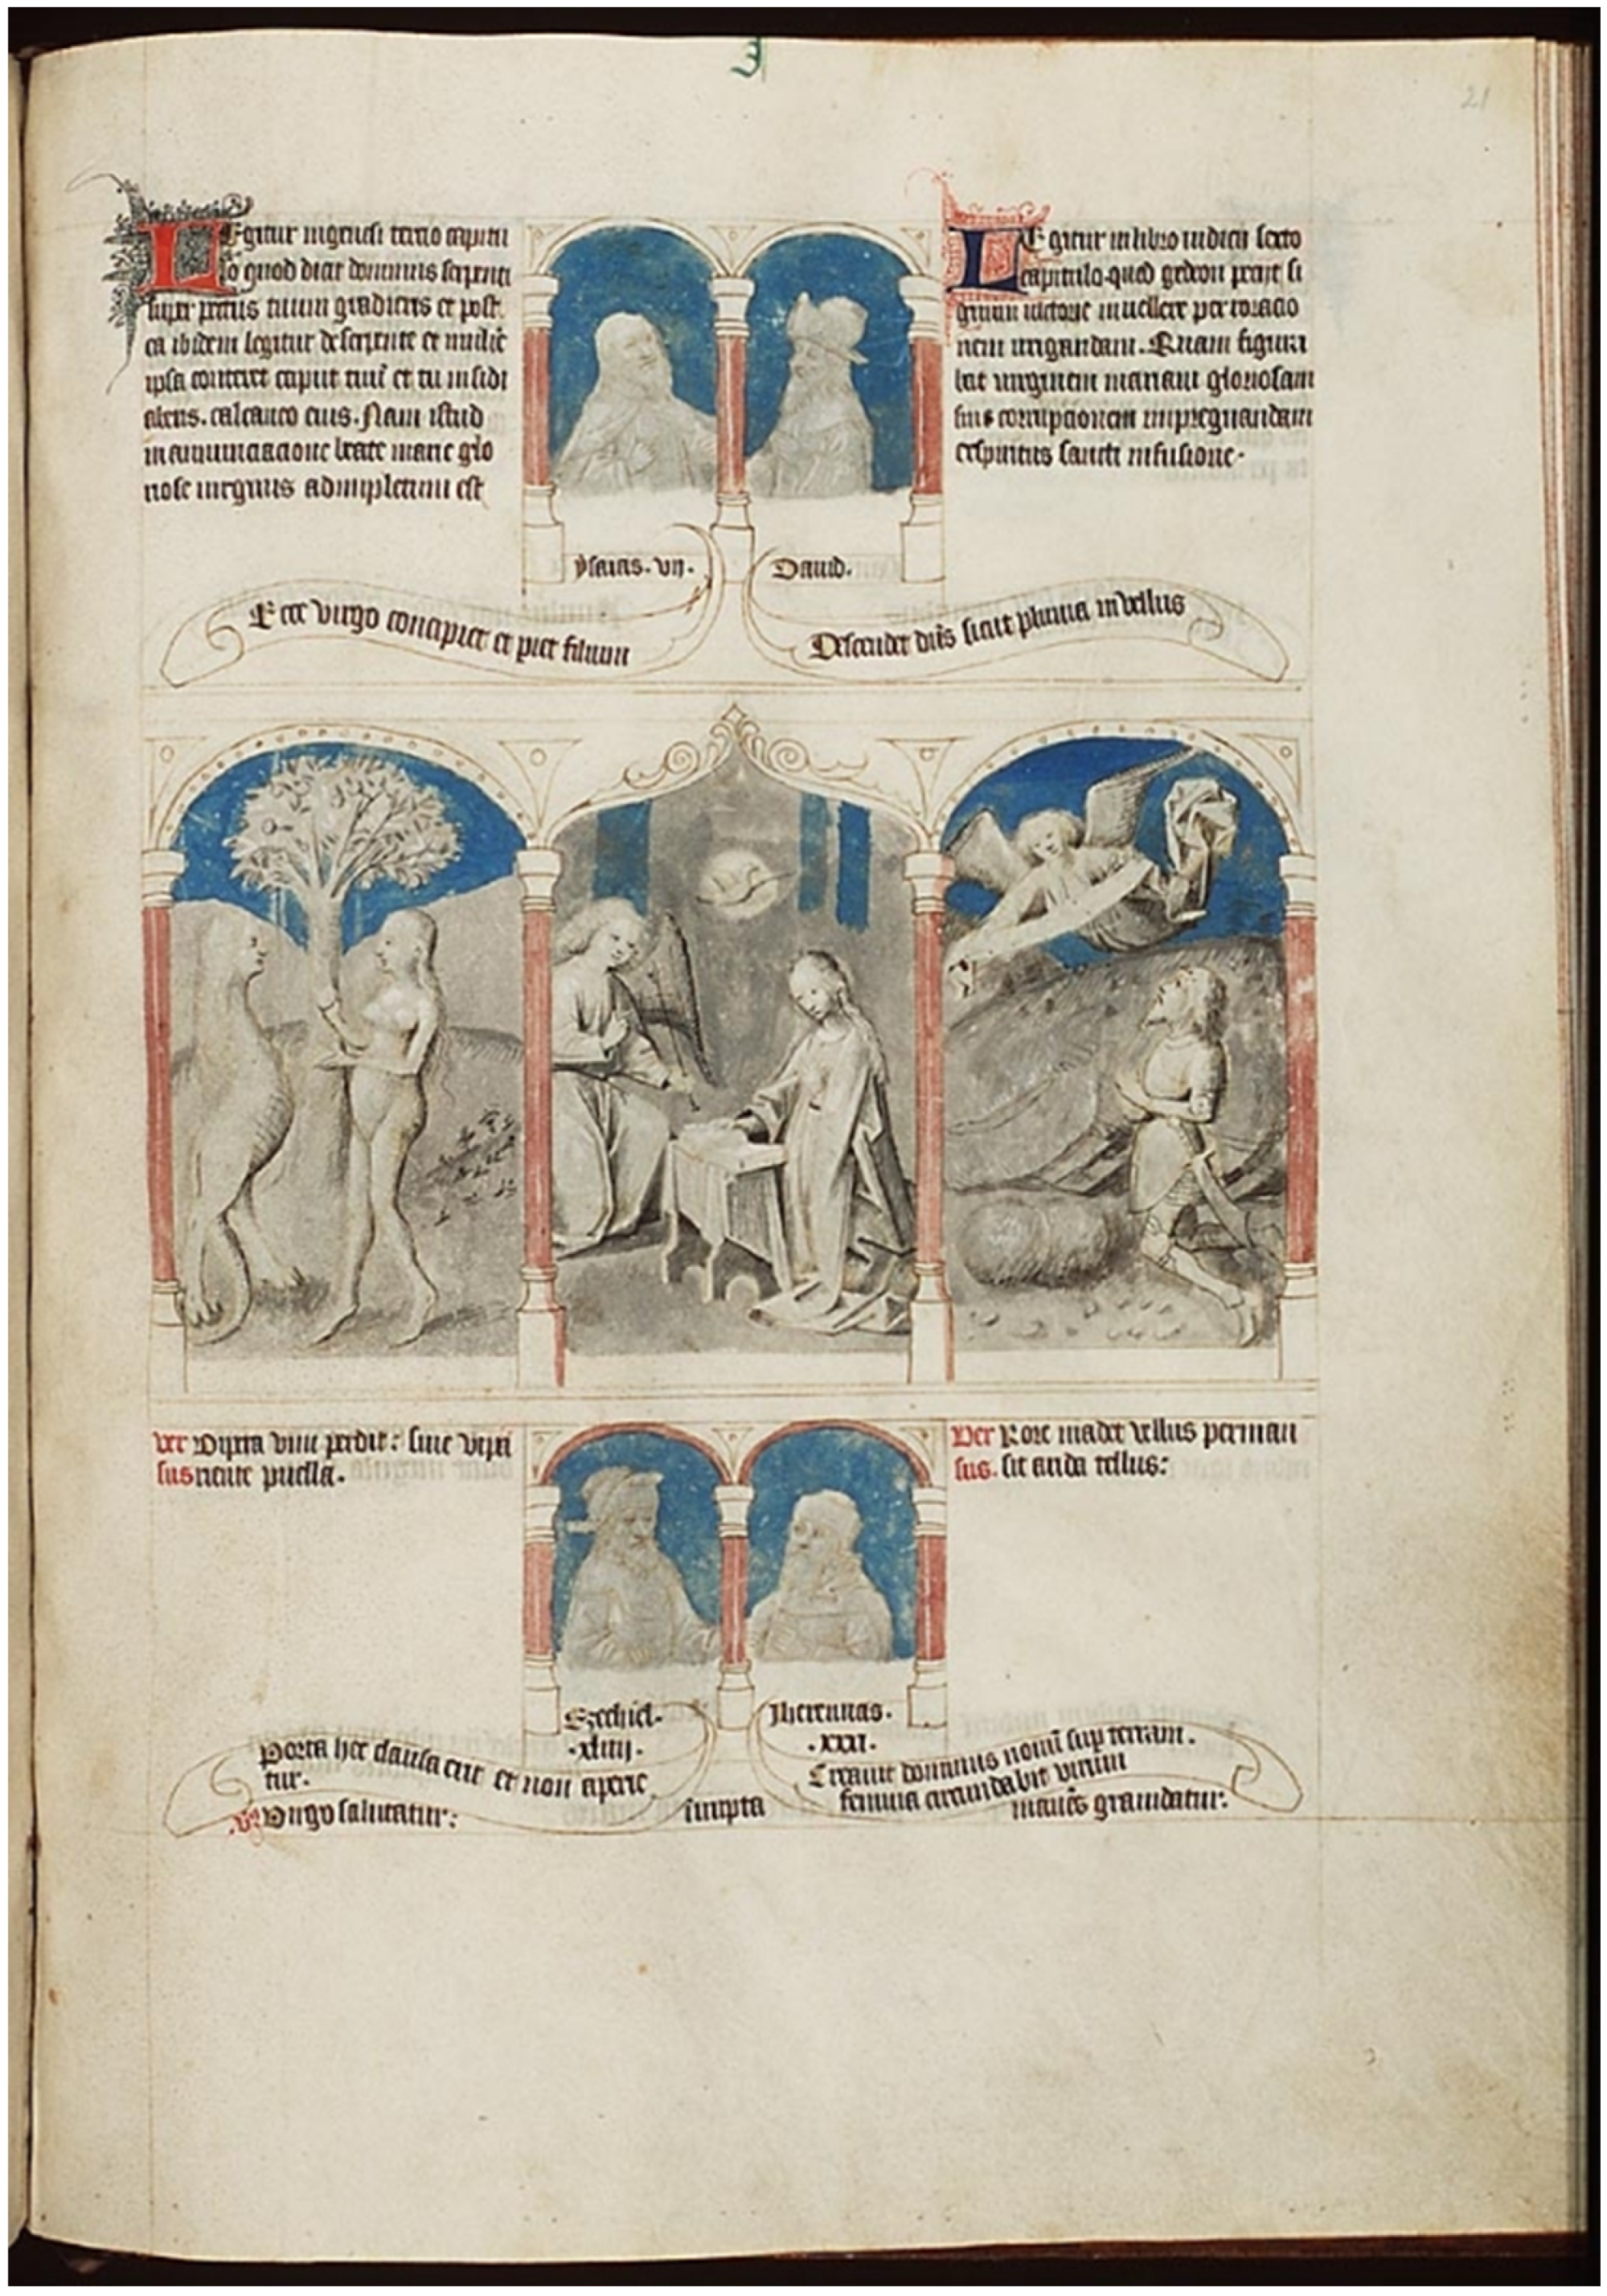 21
Legitur in genesi tercio capitu
lo quod dixit dominus serpenti
super pectus tuum gradieris et post
ea ibidem legitur de serpente et muliẽ
ipsa conteret caput tuũ et tu insidi
aberis. calcaneo eius. Nam istud
in annunciacione beate marie glo
riose virginis adimpletum est
LEgitur in libro iudicũ sexto
capitulo quod gedeon peciit si
gnum victorie in vellere per roracio
nem irrigandam. Quam figura
bat virginem mariam gloriosam
sine corrupcionem impregnandam
ex spiritus sancti infusione.
ysaias. vij.
Dauid.
Ecce virgo concipiet et piet filium
Descendet dñs sicut pluuia in vellus
ver Vipera vim perdit: sine vi pari
sus ente puella.
Ver Rore madet vellus perman
sus. sit arida tellus:
Ezechiel.
.xliiij.
Jheremias.
.xxxi.
Porta hec clausa erit et non aperie
tur.
Creauit dominus nouũ sup terram.
femina circumdabit virum
Virgo salutatur:
innupta
manẽs grauidatur.